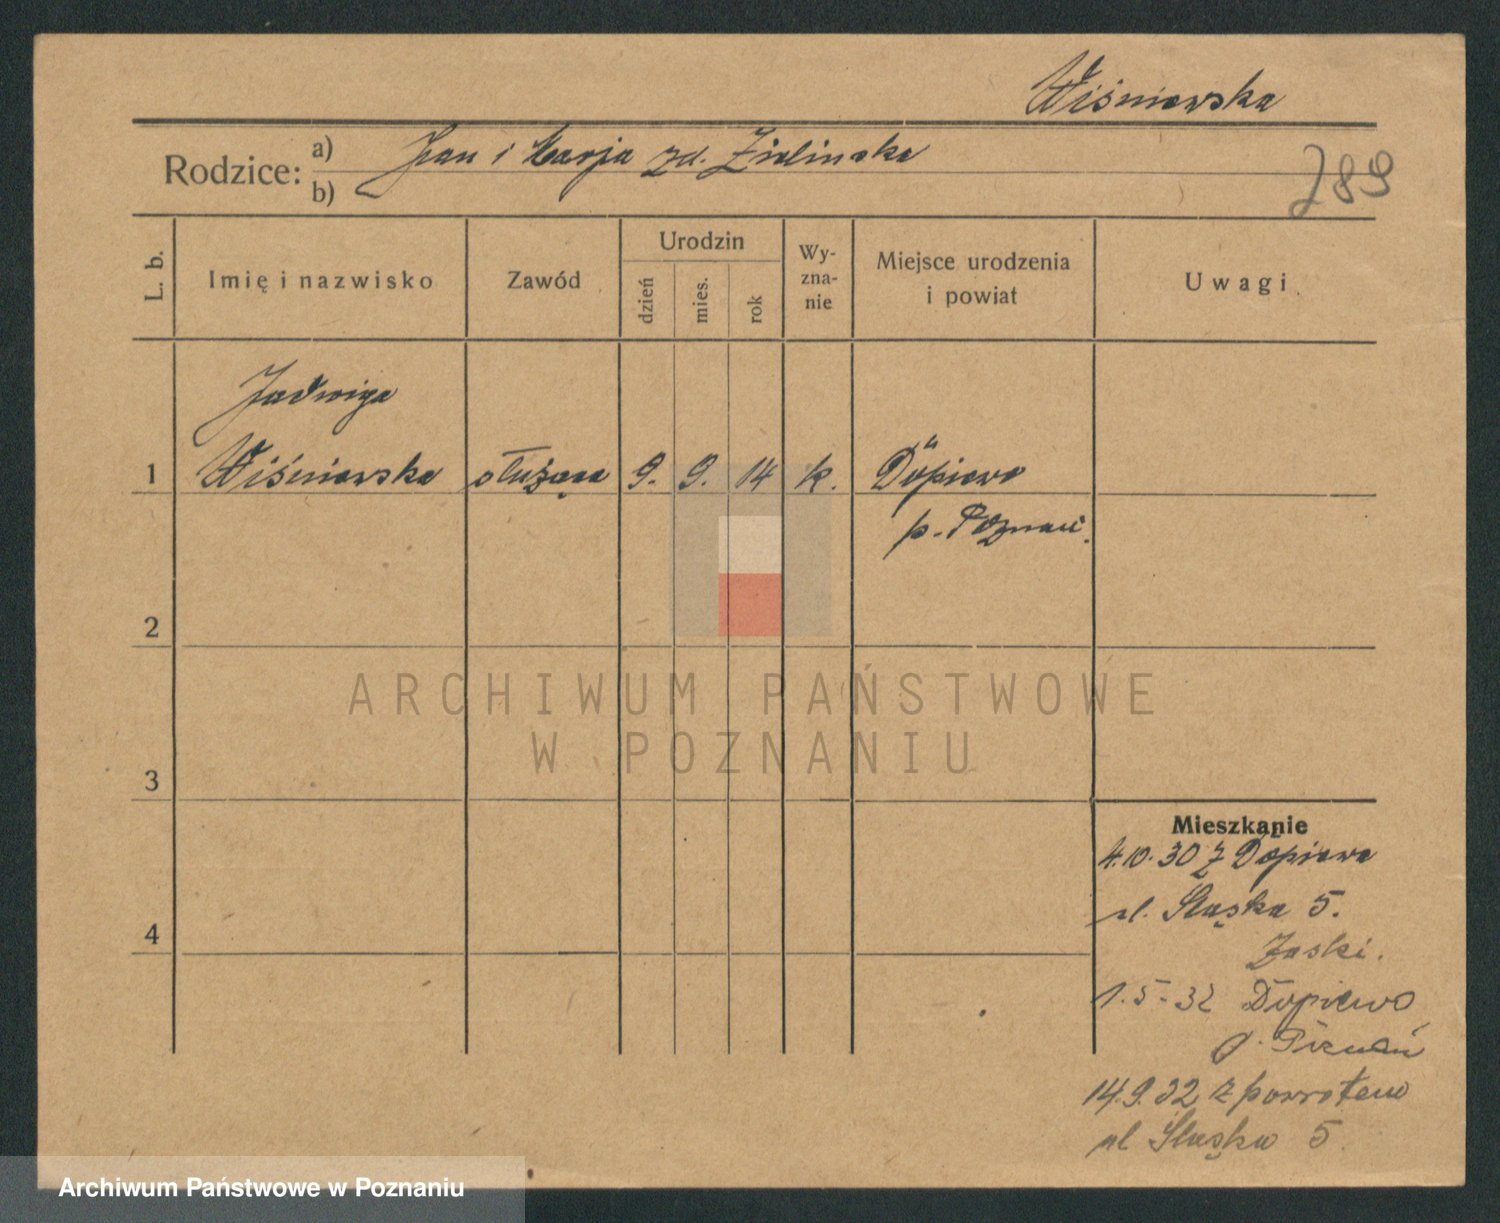 Wiśniewska
Rodzice: a) Jan i Marja zd. Zielinska
b)
789
L. b.
Imię i nazwisko
Zawód
Urodzin
dzień
mies.
rok
Wy-
zna-
nie
Miejsce urodzenia
i powiat
Uwagi
Jadwiga
1 Wiśniewska służąca 9. 9. 14 k. Dopiewo
p. Poznań.
2
3
4
ARCHIWUM PAŃSTWOWE
W POZNANIU
Mieszkanie
4.10.30 z Dopiewa
ul. Śląska 5.
1.5-32 Dopiewo
p. Poznań
14.9.32 z powrotem
ul Śląska 5.
Archiwum Państwowe w Poznaniu